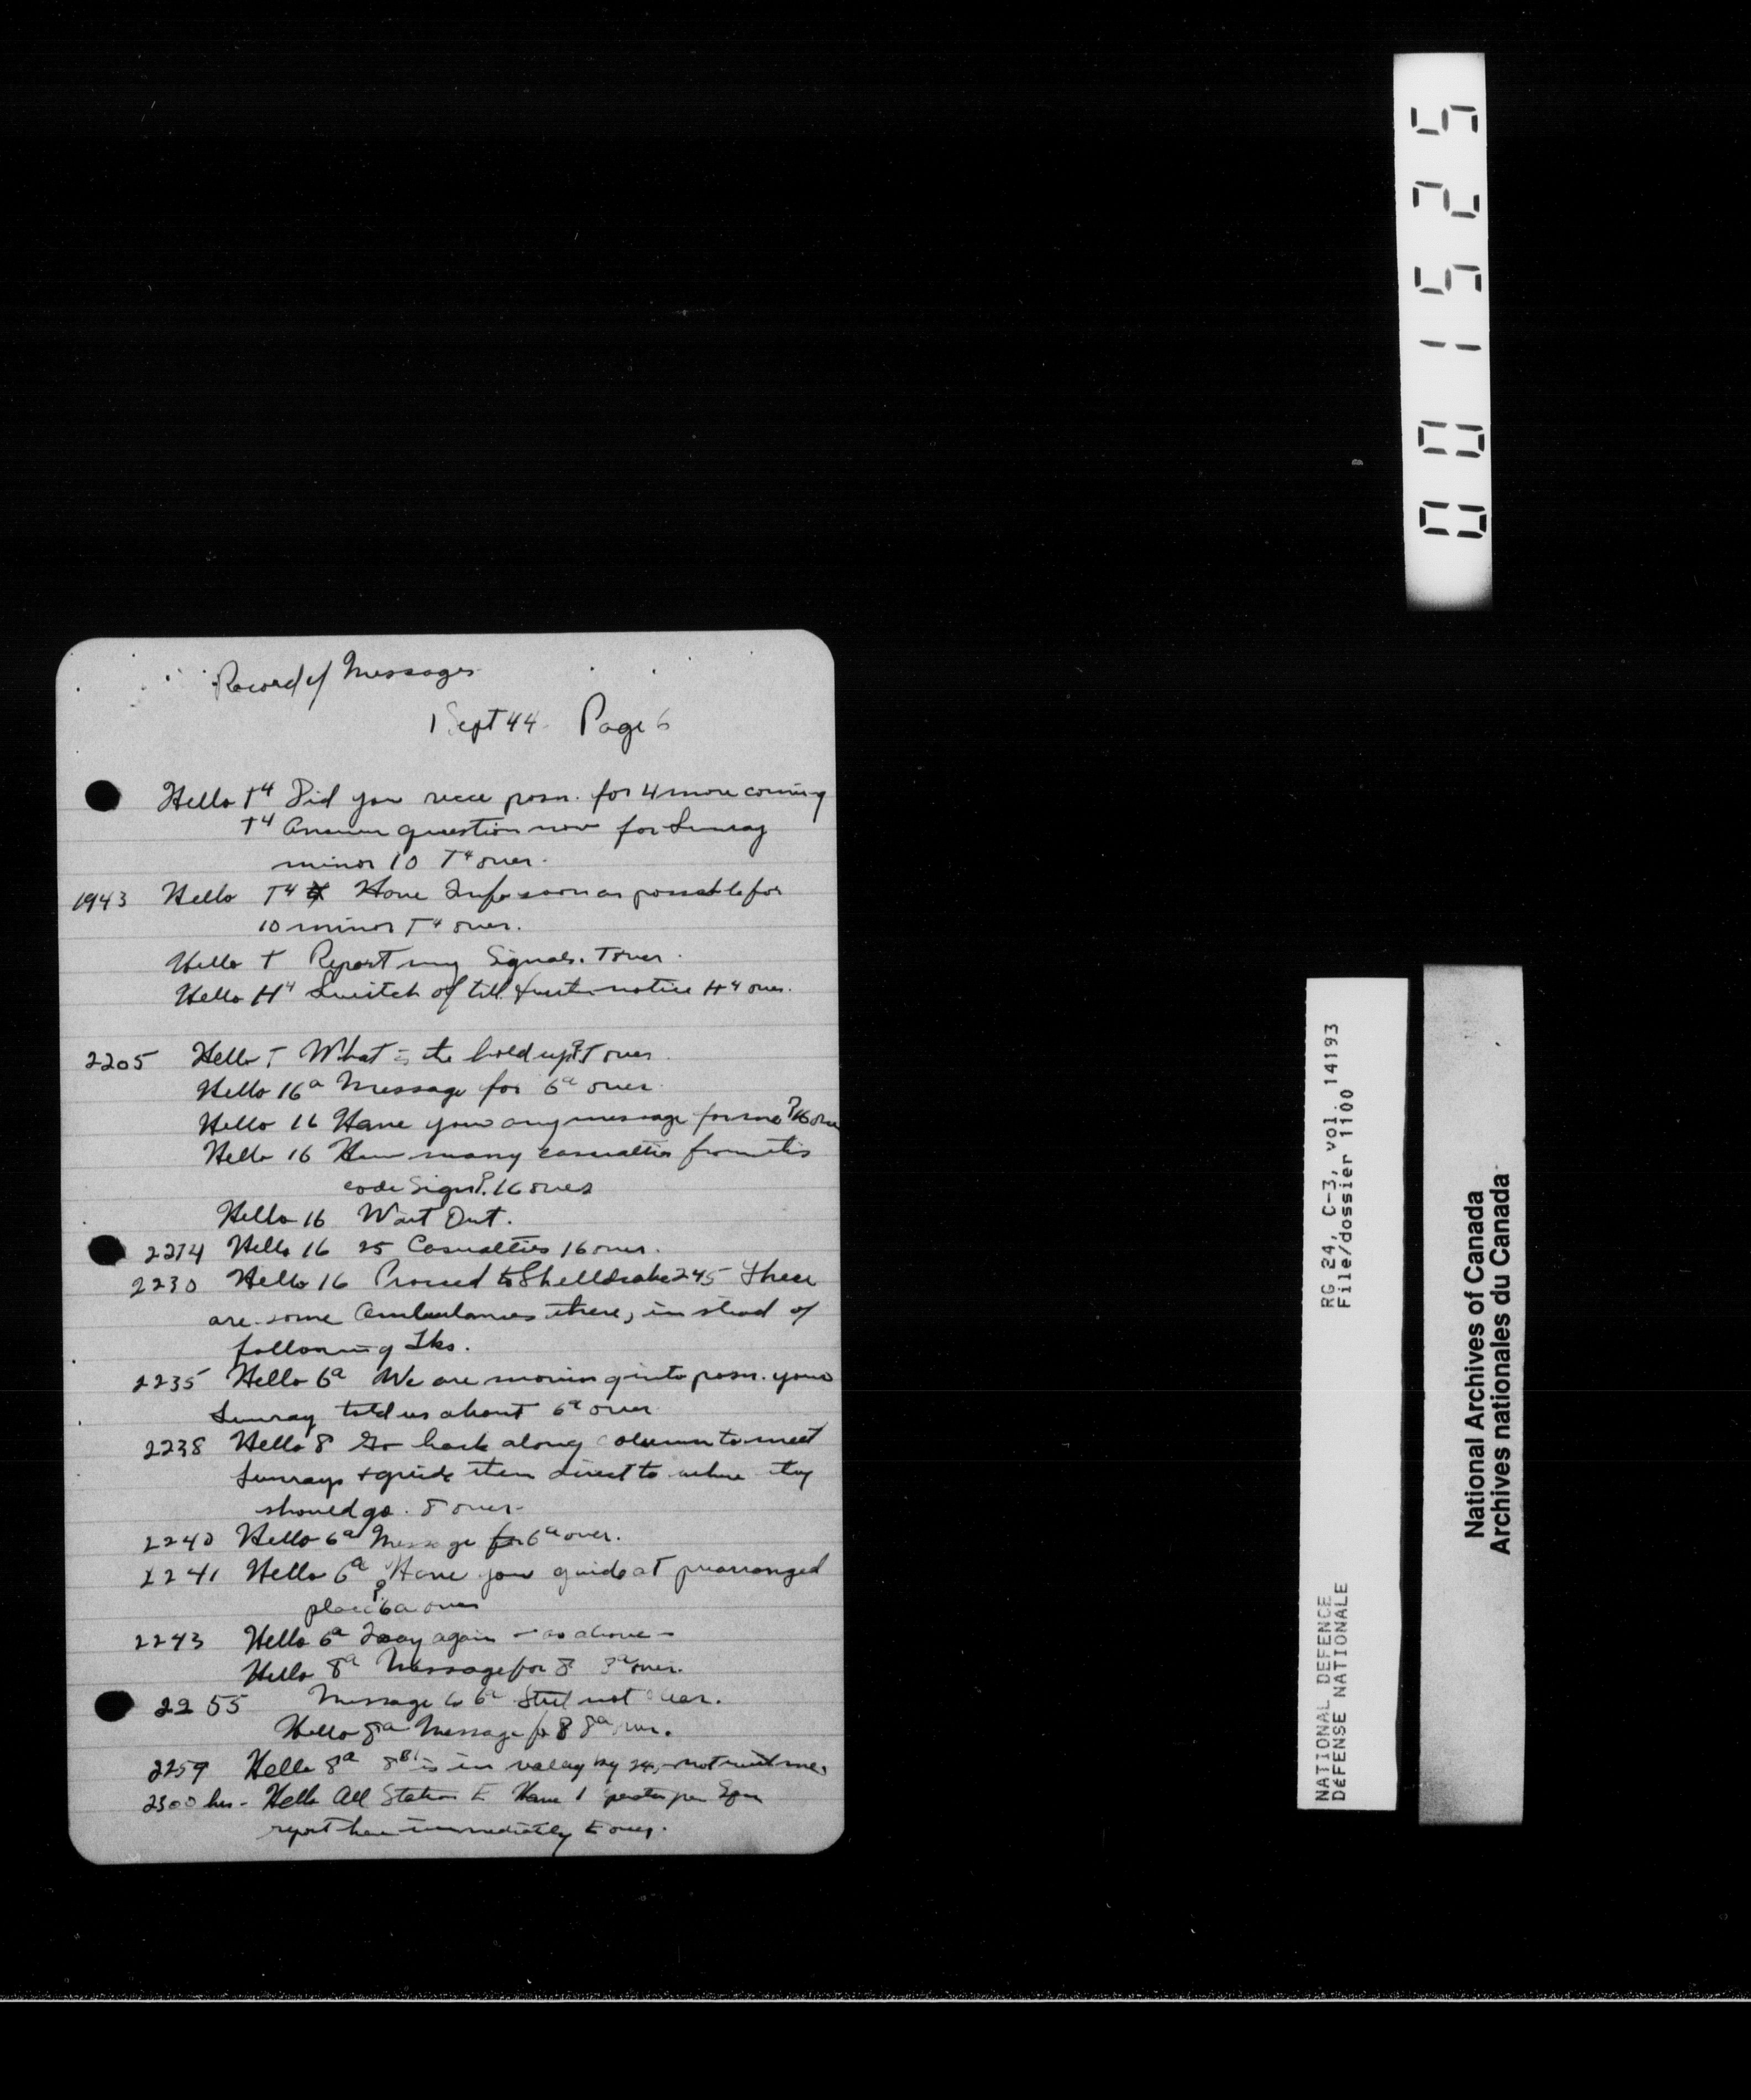 Record of Messages
1 Sept 44 Page 6
Hello T4 Did you recce posn. for 4 more coming
T4 Answer question now for Sunray
minor 10 T4 over.
1943 Hello T4 Have Info soon as possible for
10 minor T4 over.
Hello T Report my Signals. T over.
Hello H4 Switch of till further notice H4 over.
2205 Hello T What is the hold up? T over.
Hello 16a Message for 6a over.
Hello 16 Have you any message for me? 16 over
Hello 16 How many casualties from this
code sign? 16 over
Hello 16 Wait Out.
2214 Hello 16 25 Casualties 16 over.
2230 Hello 16 Proceed to Shelldrake 245 There
are some Ambulances there, in stead of
following Tks.
2235 Hello 6a We are moving into posn. your
Sunray told us about 6a over
2238 Hello 8 Go back along column to meet
Sunrays + guide them direct to where they
should go. 8 over-
2240 Hello 6a Message for 6a over.
2241 Hello 6a Have you guide at prearranged
place? 6a over
2243 Hello 6a I say again - as above -
Hello 8a Message for 8 8a over.
2255 Message to 6a Still not clear.
Hello 8a Message for 8 8a over.
2259 Hello 8a is in valley by
2300 hrs - Hello All Stations E Have 1 per
report here immediately E over.
001525
RG 24, C-3, vol. 14193
File/dossier 1100
NATIONAL DEFENCE
DÉFENSE NATIONALE
National Archives of Canada
Archives nationales du Canada